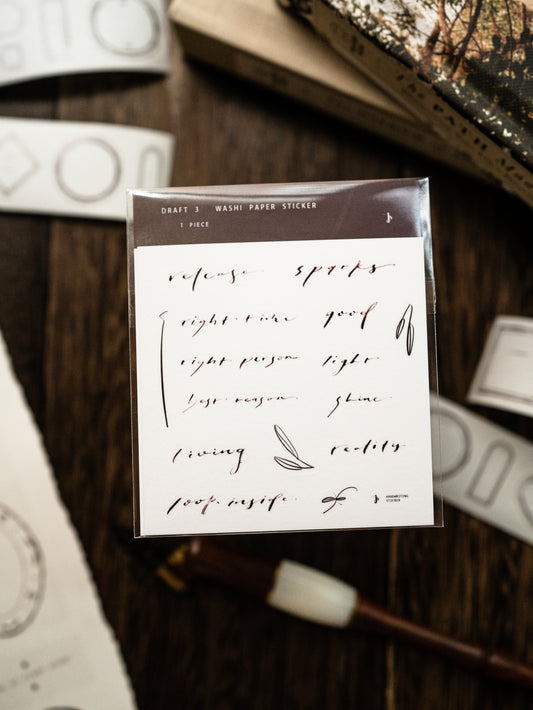 DRAFT 3 WASHI PAPER STICKER
1 PIECE
release sparks
right time good
right person light
best reason shine
living reality
look inside
HANDWRITING
STICKER
The PATH